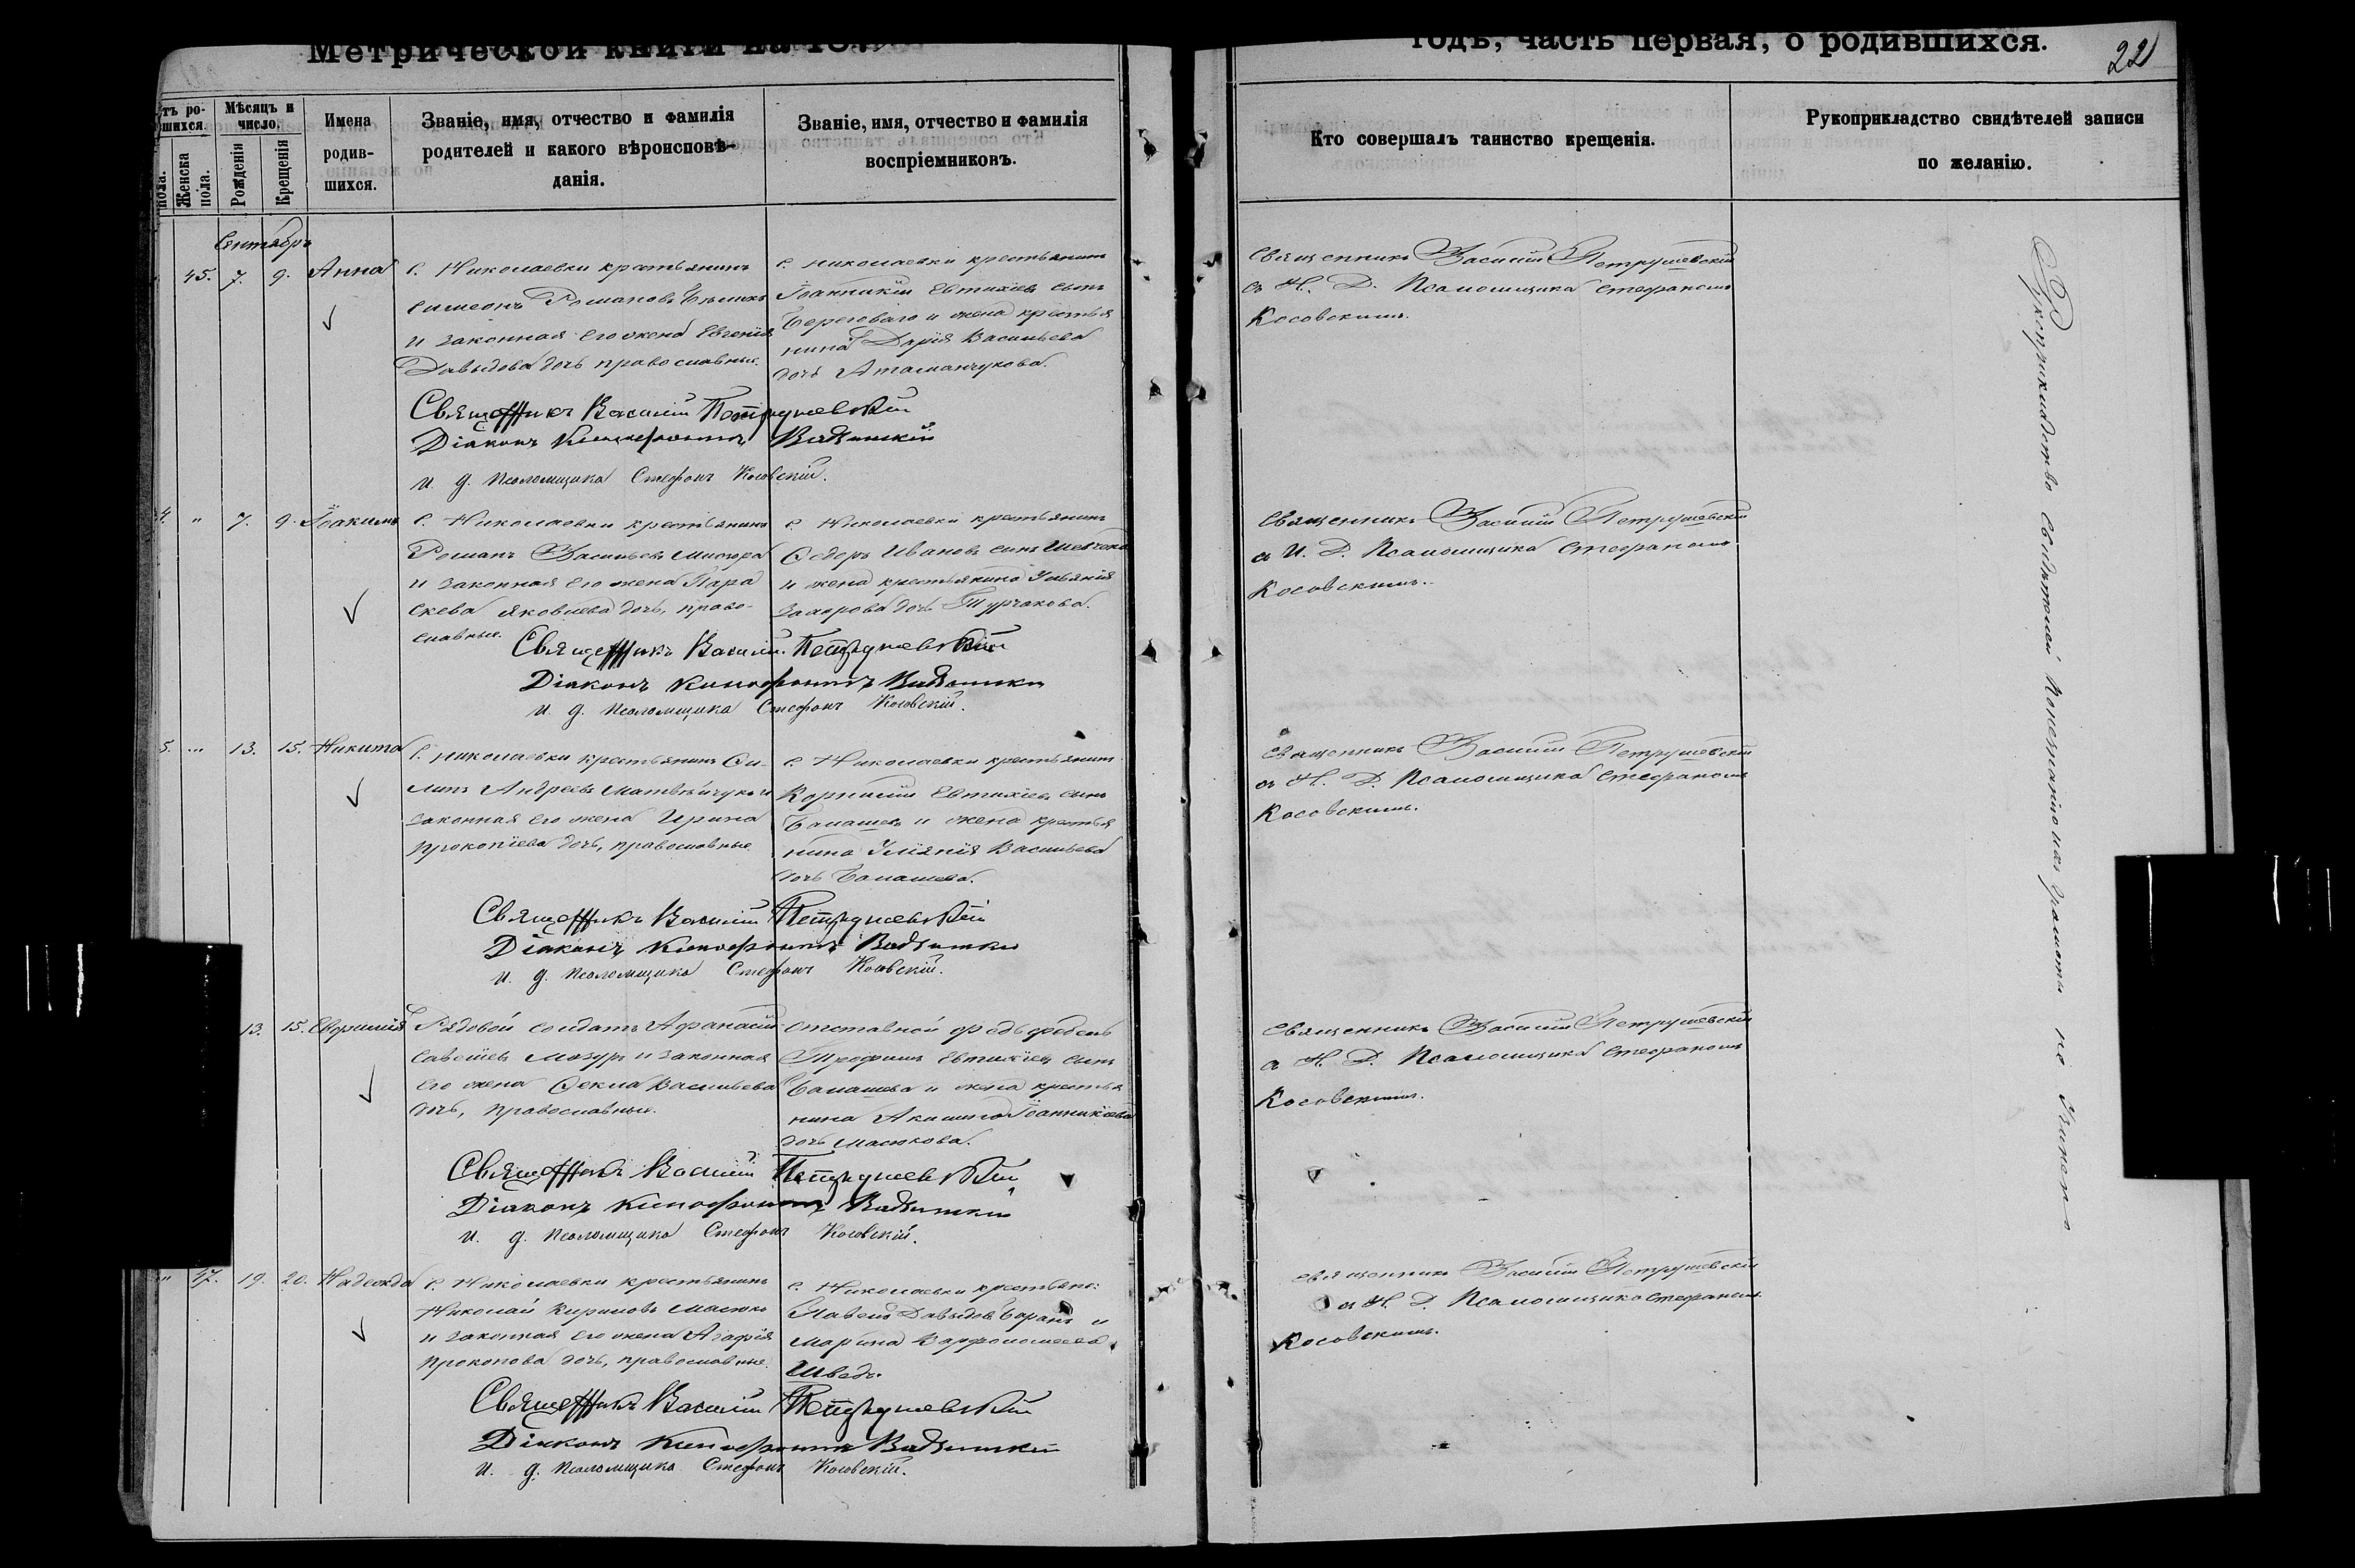 Метрической книги на 18
годъ, часть первая, о родившихся.
22
тъ ро-
шихся.
Мѣсяцъ и
число.
Имена
родив-
шихся.
Званіе, имя, отчество и фамилія
родителей и какого вѣроисповѣ-
данія.
Званіе, имя, отчество и фамилія
воспріемниковъ.
Кто совершалъ таинство крещенія.
Рукоприкладство свидѣтелей записи
по желанію.
пола.
Женска
пола.
Рожденія
Крещенія
Сентябрь
45. 7. 9. Анна
с. Николаевки крестьянинъ
Симеонъ Романовъ
и законная его жена Евгенія
Давыдова дочь православные.
с. Николаевки крестьянинъ
Іоанникій Евтихіевъ сынъ
Береговаго и жена крестья
нина Дарія Васильева
дочь Атаманчукова.
Священникъ Василій Петрушевскій
съ И. Д. Псаломщика Стефаномъ
Косовскимъ.
Священникъ Василій Петрушевскій
Діаконъ Ксенофонтъ
и. д. Псаломщика Стефанъ Косовскій.
4. " 7. 9. Іоакимъ
с. Николаевки крестьянинъ
Романъ Васильевъ
и законная его жена Пара
скева Яковлева дочь, право-
славные.
с. Николаевки крестьянинъ
Ѳедоръ Ивановъ сынъ Шевченко
и жена крестьянина Ульянія
дочь Турчакова.
Священникъ Василій Петрушевскій
съ И. Д. Псаломщика Стефаномъ
Косовскимъ.
Священникъ Василій Петрушевскій
Діаконъ Ксенофонтъ
и. д. Псаломщика Стефанъ Косовскій.
5. " 13. 15. Никита
с. Николаевки крестьянинъ Фи-
липъ Андреевъ Матвѣйчукъ и
законная его жена Ирина
Прокопіева дочь, православные
с. Николаевки крестьянинъ
Корнилій Евтихіевъ сынъ
Балашевъ и жена крестья
нина Уліянія Васильева
дочь Балашева.
Священникъ Василій Петрушевскій
съ И. Д. Псаломщика Стефаномъ
Косовскимъ.
Священникъ Василій Петрушевскій
Діаконъ Ксенофонтъ
и. д. Псаломщика Стефанъ Косовскій.
13. 15. Евфимія
Рядовой солдатъ Афанасій
Савеліевъ Мазуръ и законная
его жена Ѳекла Васильева
дочь, православные.
отставной фельдфебель
Трофимъ Евтихіевъ сынъ
Балашевъ и жена крестья
нина Акилина Іоанникіева
дочь Масюкова.
Священникъ Василій Петрушевскій
съ И. Д. Псаломщика Стефаномъ
Косовскимъ.
Священникъ Василій Петрушевскій
Діаконъ Ксенофонтъ
и. д. Псаломщика Стефанъ Косовскій.
" 47. 19. 20. Надежда
с. Николаевки крестьянинъ
Николай Кириловъ Масюкъ
и законная его жена Агафія
Прокопова дочь, православные.
с. Николаевки крестьяне:
Павелъ Давыдовъ Баранъ и
Марина Варфоломеева
Шведъ.
Священникъ Василій Петрушевскій
съ И. Д. Псаломщика Стефаномъ
Косовскимъ.
Священникъ Василій Петрушевскій
Діаконъ Ксенофонтъ
и. д. Псаломщика Стефанъ Косовскій.
Рукоприкладство свидѣтелей по